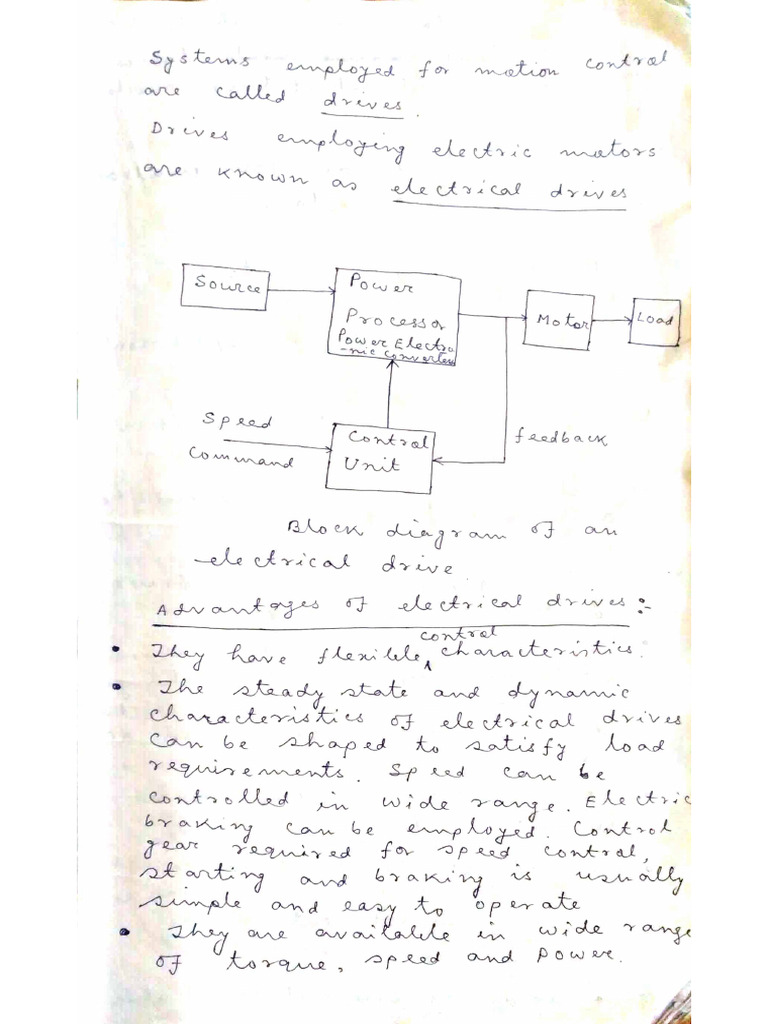 Systems employed for motion control
are called drives.
Drives employing electric motors
are known as electrical drives
Source
Power
Processor
Power Electro
-nic converters
Motor
Load
Speed
Command
Control
Unit
feedback
Block diagram of an
electrical drive
Advantages of electrical drives:-
control
• They have flexible ^ characteristics.
• The steady state and dynamic
characteristics of electrical drives
can be shaped to satisfy load
requirements. Speed can be
controlled in wide range. Electric
braking can be employed. Control
gear required for speed control,
starting and braking is usually
simple and easy to operate
• They are available in wide range
of torque, speed and power.